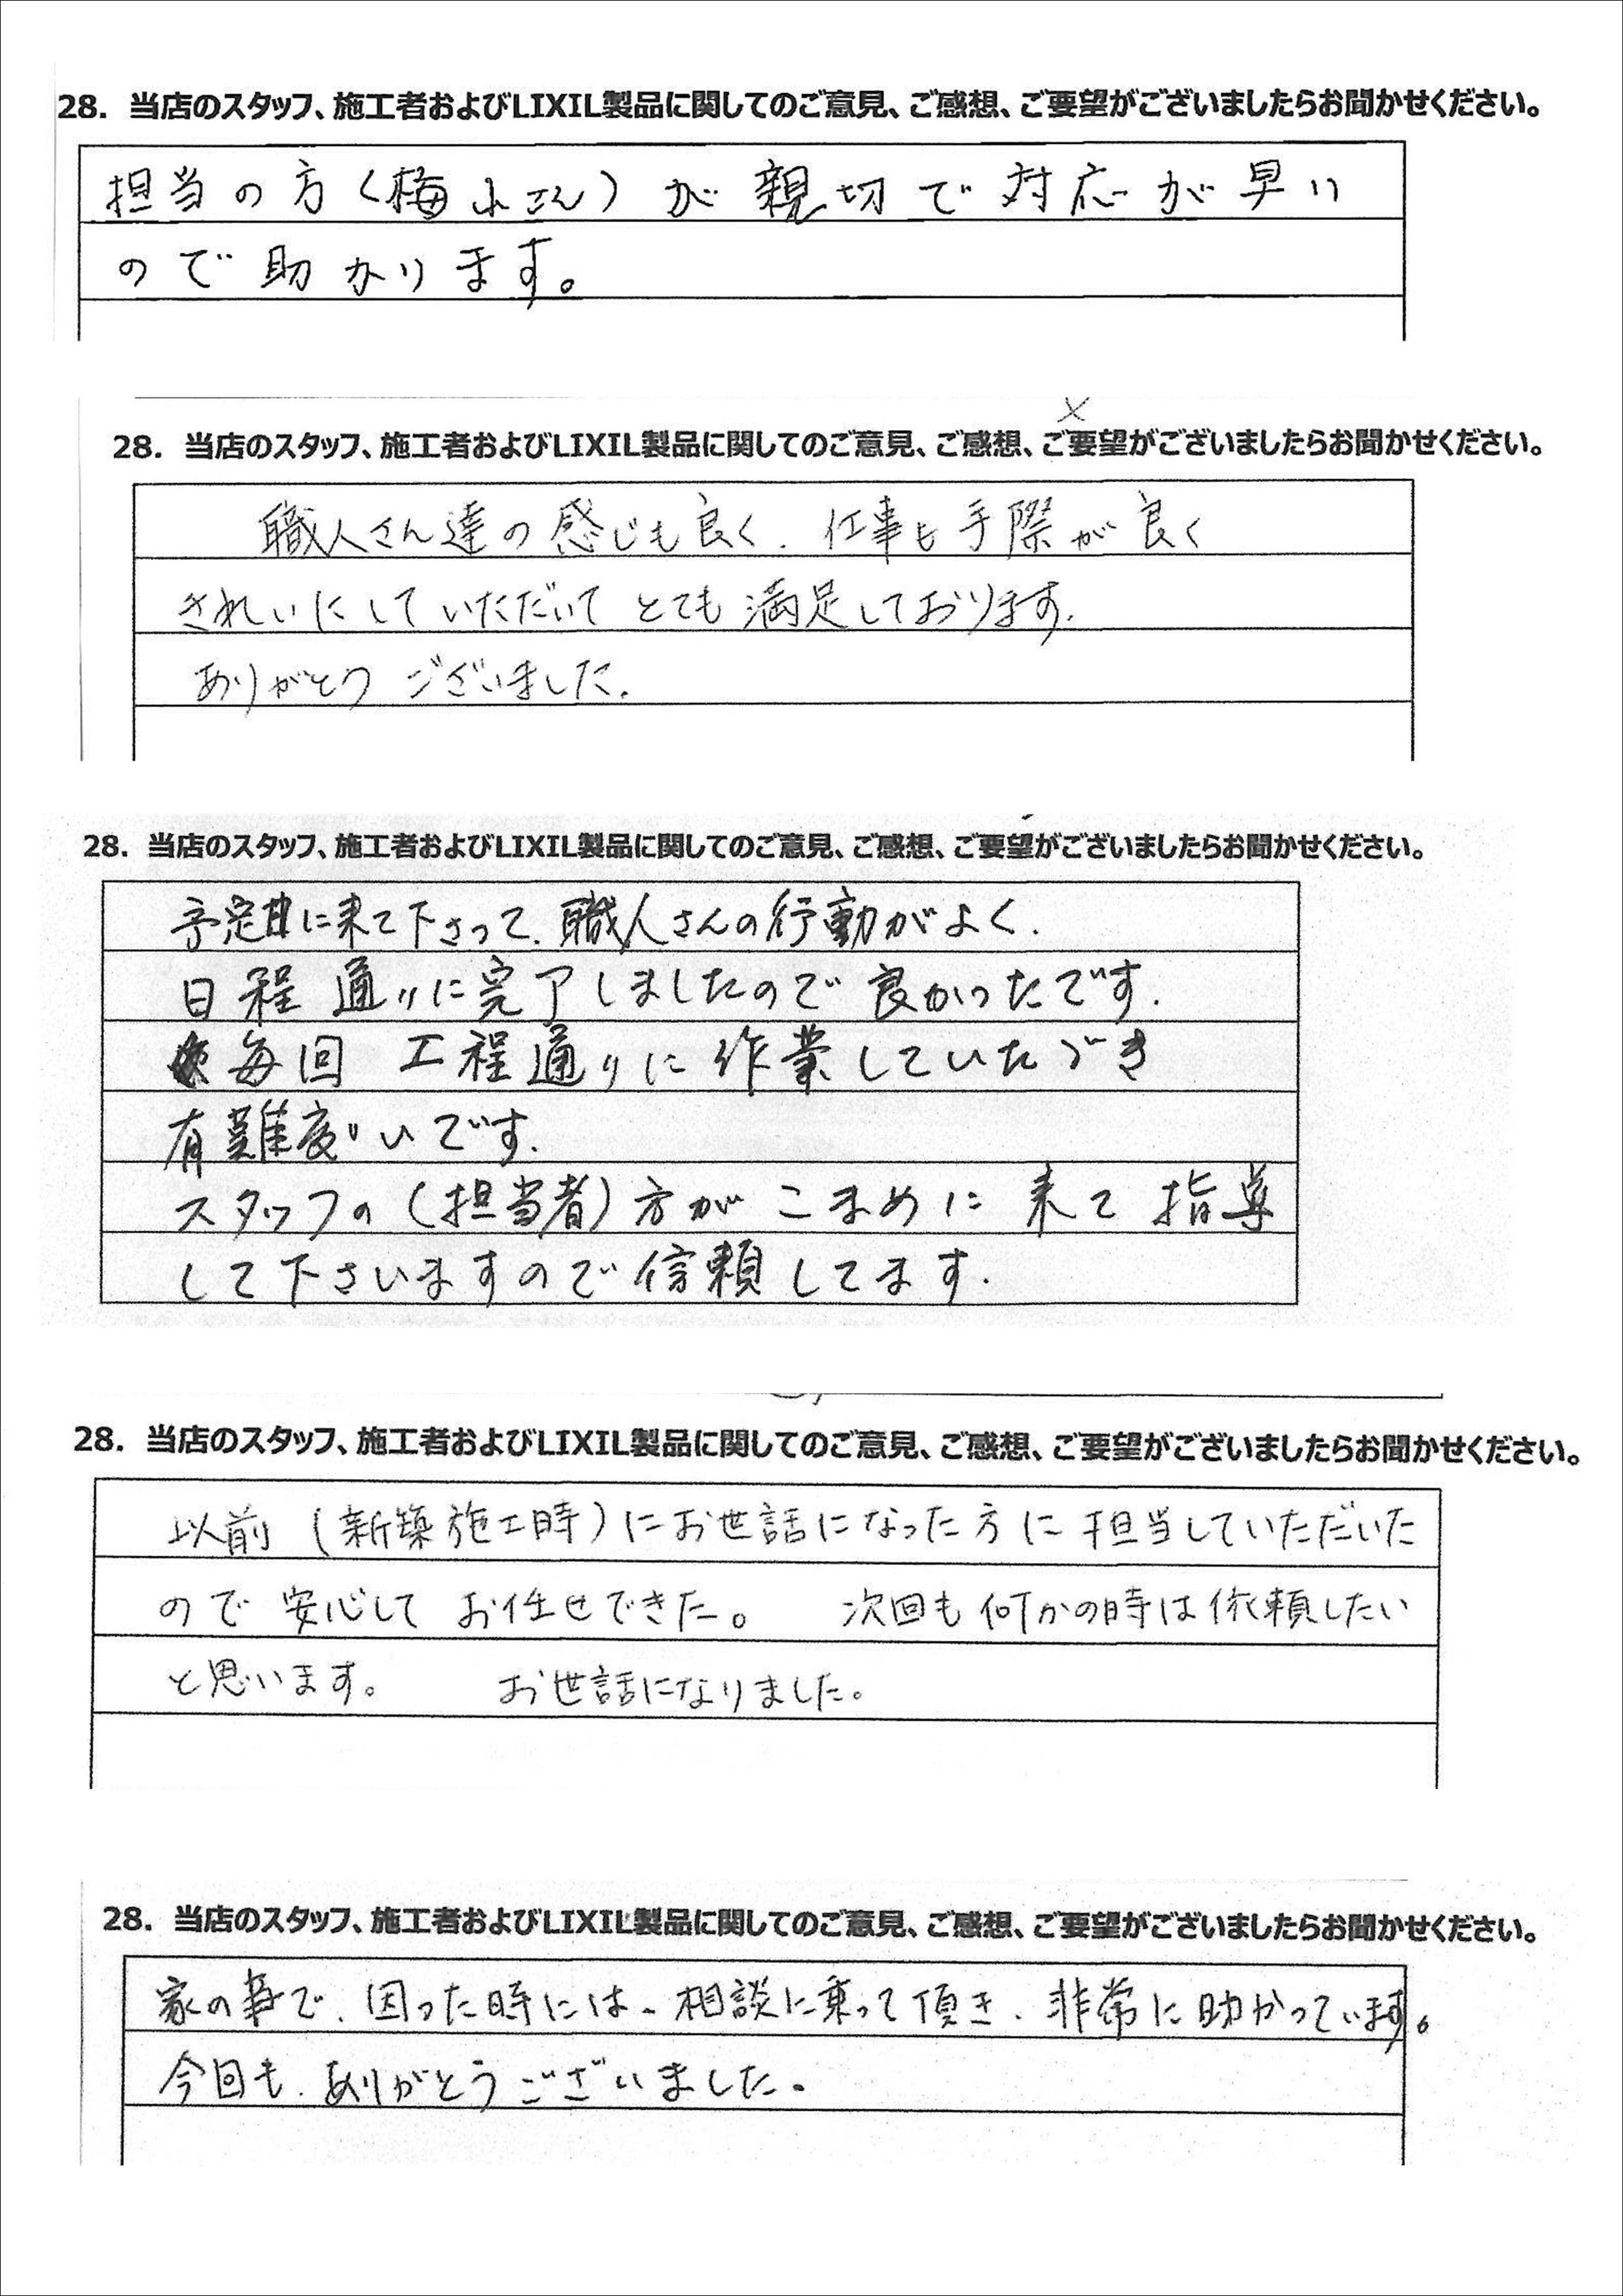 28. 当店のスタッフ、施工者およびLIXIL製品に関してのご意見、ご感想、ご要望がございましたらお聞かせください。
担当の方(梅小さん)が親切で対応が早い
ので助かります。
28. 当店のスタッフ、施工者およびLIXIL製品に関してのご意見、ご感想、ご要望がございましたらお聞かせください。
職人さん達の感じも良く、仕事も手際が良く
きれいにしていただいてとても満足しております。
ありがとうございました。
28. 当店のスタッフ、施工者およびLIXIL製品に関してのご意見、ご感想、ご要望がございましたらお聞かせください。
予定日に来て下さって、職人さんの行動がよく、
日程通りに完了しましたので良かったです。
毎回 工程通りに作業していただき
有難度いです。
スタッフの(担当者)方がこまめに来て指導
して下さいますので信頼してます。
28. 当店のスタッフ、施工者およびLIXIL製品に関してのご意見、ご感想、ご要望がございましたらお聞かせください。
以前(新築施工時)にお世話になった方に担当していただいた
ので安心してお任せできた。 次回も何かの時は依頼したい
と思います。 お世話になりました。
28. 当店のスタッフ、施工者およびLIXIL製品に関してのご意見、ご感想、ご要望がございましたらお聞かせください。
家の事で、困った時には、相談に乗って頂き、非常に助かっています。
今回も、ありがとうございました。